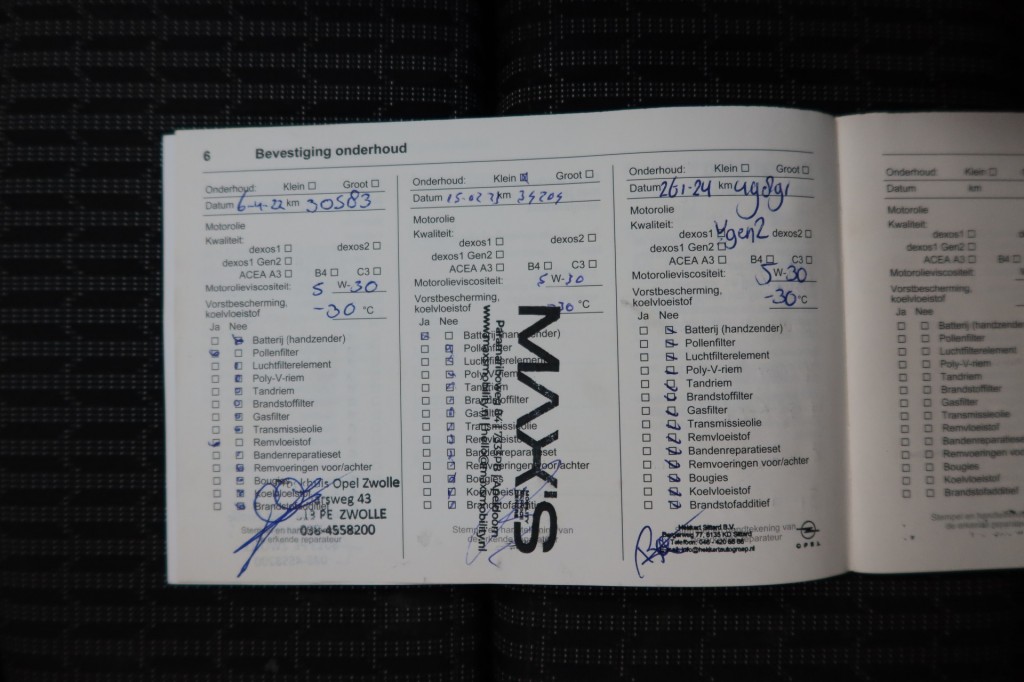 6 Bevestiging onderhoud
Onderhoud: Klein ☐ Groot ☐
Datum 6-4-22 km 30583
Motorolie
Kwaliteit:
dexos1 ☐ dexos2 ☐
dexos1 Gen2 ☐
ACEA A3 ☐ B4 ☐ C3 ☐
Motorolieviscositeit: 5 W-30
Vorstbescherming,
koelvloeistof -30 °C
Ja Nee
Batterij (handzender)
Pollenfilter
Luchtfilterelement
Poly-V-riem
Tandriem
Brandstoffilter
Gasfilter
Transmissieolie
Remvloeistof
Bandenreparatieset
Remvoeringen voor/achter
Bougies
Koelvloeistof
Brandstofadditief
Opel Zwolle
PE ZWOLLE
038-4558200
Onderhoud: Klein ☒ Groot ☐
Datum 15-02 km 34204
Motorolie
Kwaliteit:
dexos1 ☐ dexos2 ☐
dexos1 Gen2 ☐
ACEA A3 ☐ B4 ☐ C3 ☐
Motorolieviscositeit: 5 W-30
Vorstbescherming,
koelvloeistof -30 °C
Ja Nee
Batterij (handzender)
Pollenfilter
Luchtfilterelement
Poly-V-riem
Tandriem
Brandstoffilter
Gasfilter
Transmissieolie
Remvloeistof
Bandenreparatieset
Remvoeringen voor/achter
Bougies
Koelvloeistof
Brandstofadditief
MAX'S
Onderhoud: Klein ☐ Groot ☐
Datum 261-24 km 49891
Motorolie
Kwaliteit:
dexos1 gen2 dexos2 ☐
dexos1 Gen2 ☐
ACEA A3 ☐ B4 ☐ C3 ☐
Motorolieviscositeit: 5 W-30
Vorstbescherming,
koelvloeistof -30 °C
Ja Nee
Batterij (handzender)
Pollenfilter
Luchtfilterelement
Poly-V-riem
Tandriem
Brandstoffilter
Gasfilter
Transmissieolie
Remvloeistof
Bandenreparatieset
Remvoeringen voor/achter
Bougies
Koelvloeistof
Brandstofadditief
Hekkert Sittard B.V.
Bergerweg 77, 6135 KD Sittard
OPEL
Onderhoud: Klein ☐
Datum km
Motorolie
Kwaliteit:
dexos1 ☐
dexos1 Gen2 ☐
ACEA A3 ☐ B4
Motorolieviscositeit:
Vorstbescherming,
koelvloeistof
Ja Nee
Batterij (handzende
Pollenfilter
Luchtfilterelement
Poly-V-riem
Tandriem
Brandstoffilter
Gasfilter
Transmissieolie
Remvloeistof
Bandenreparatieset
Remvoeringen voor/
Bougies
Koelvloeistof
Brandstofadditief